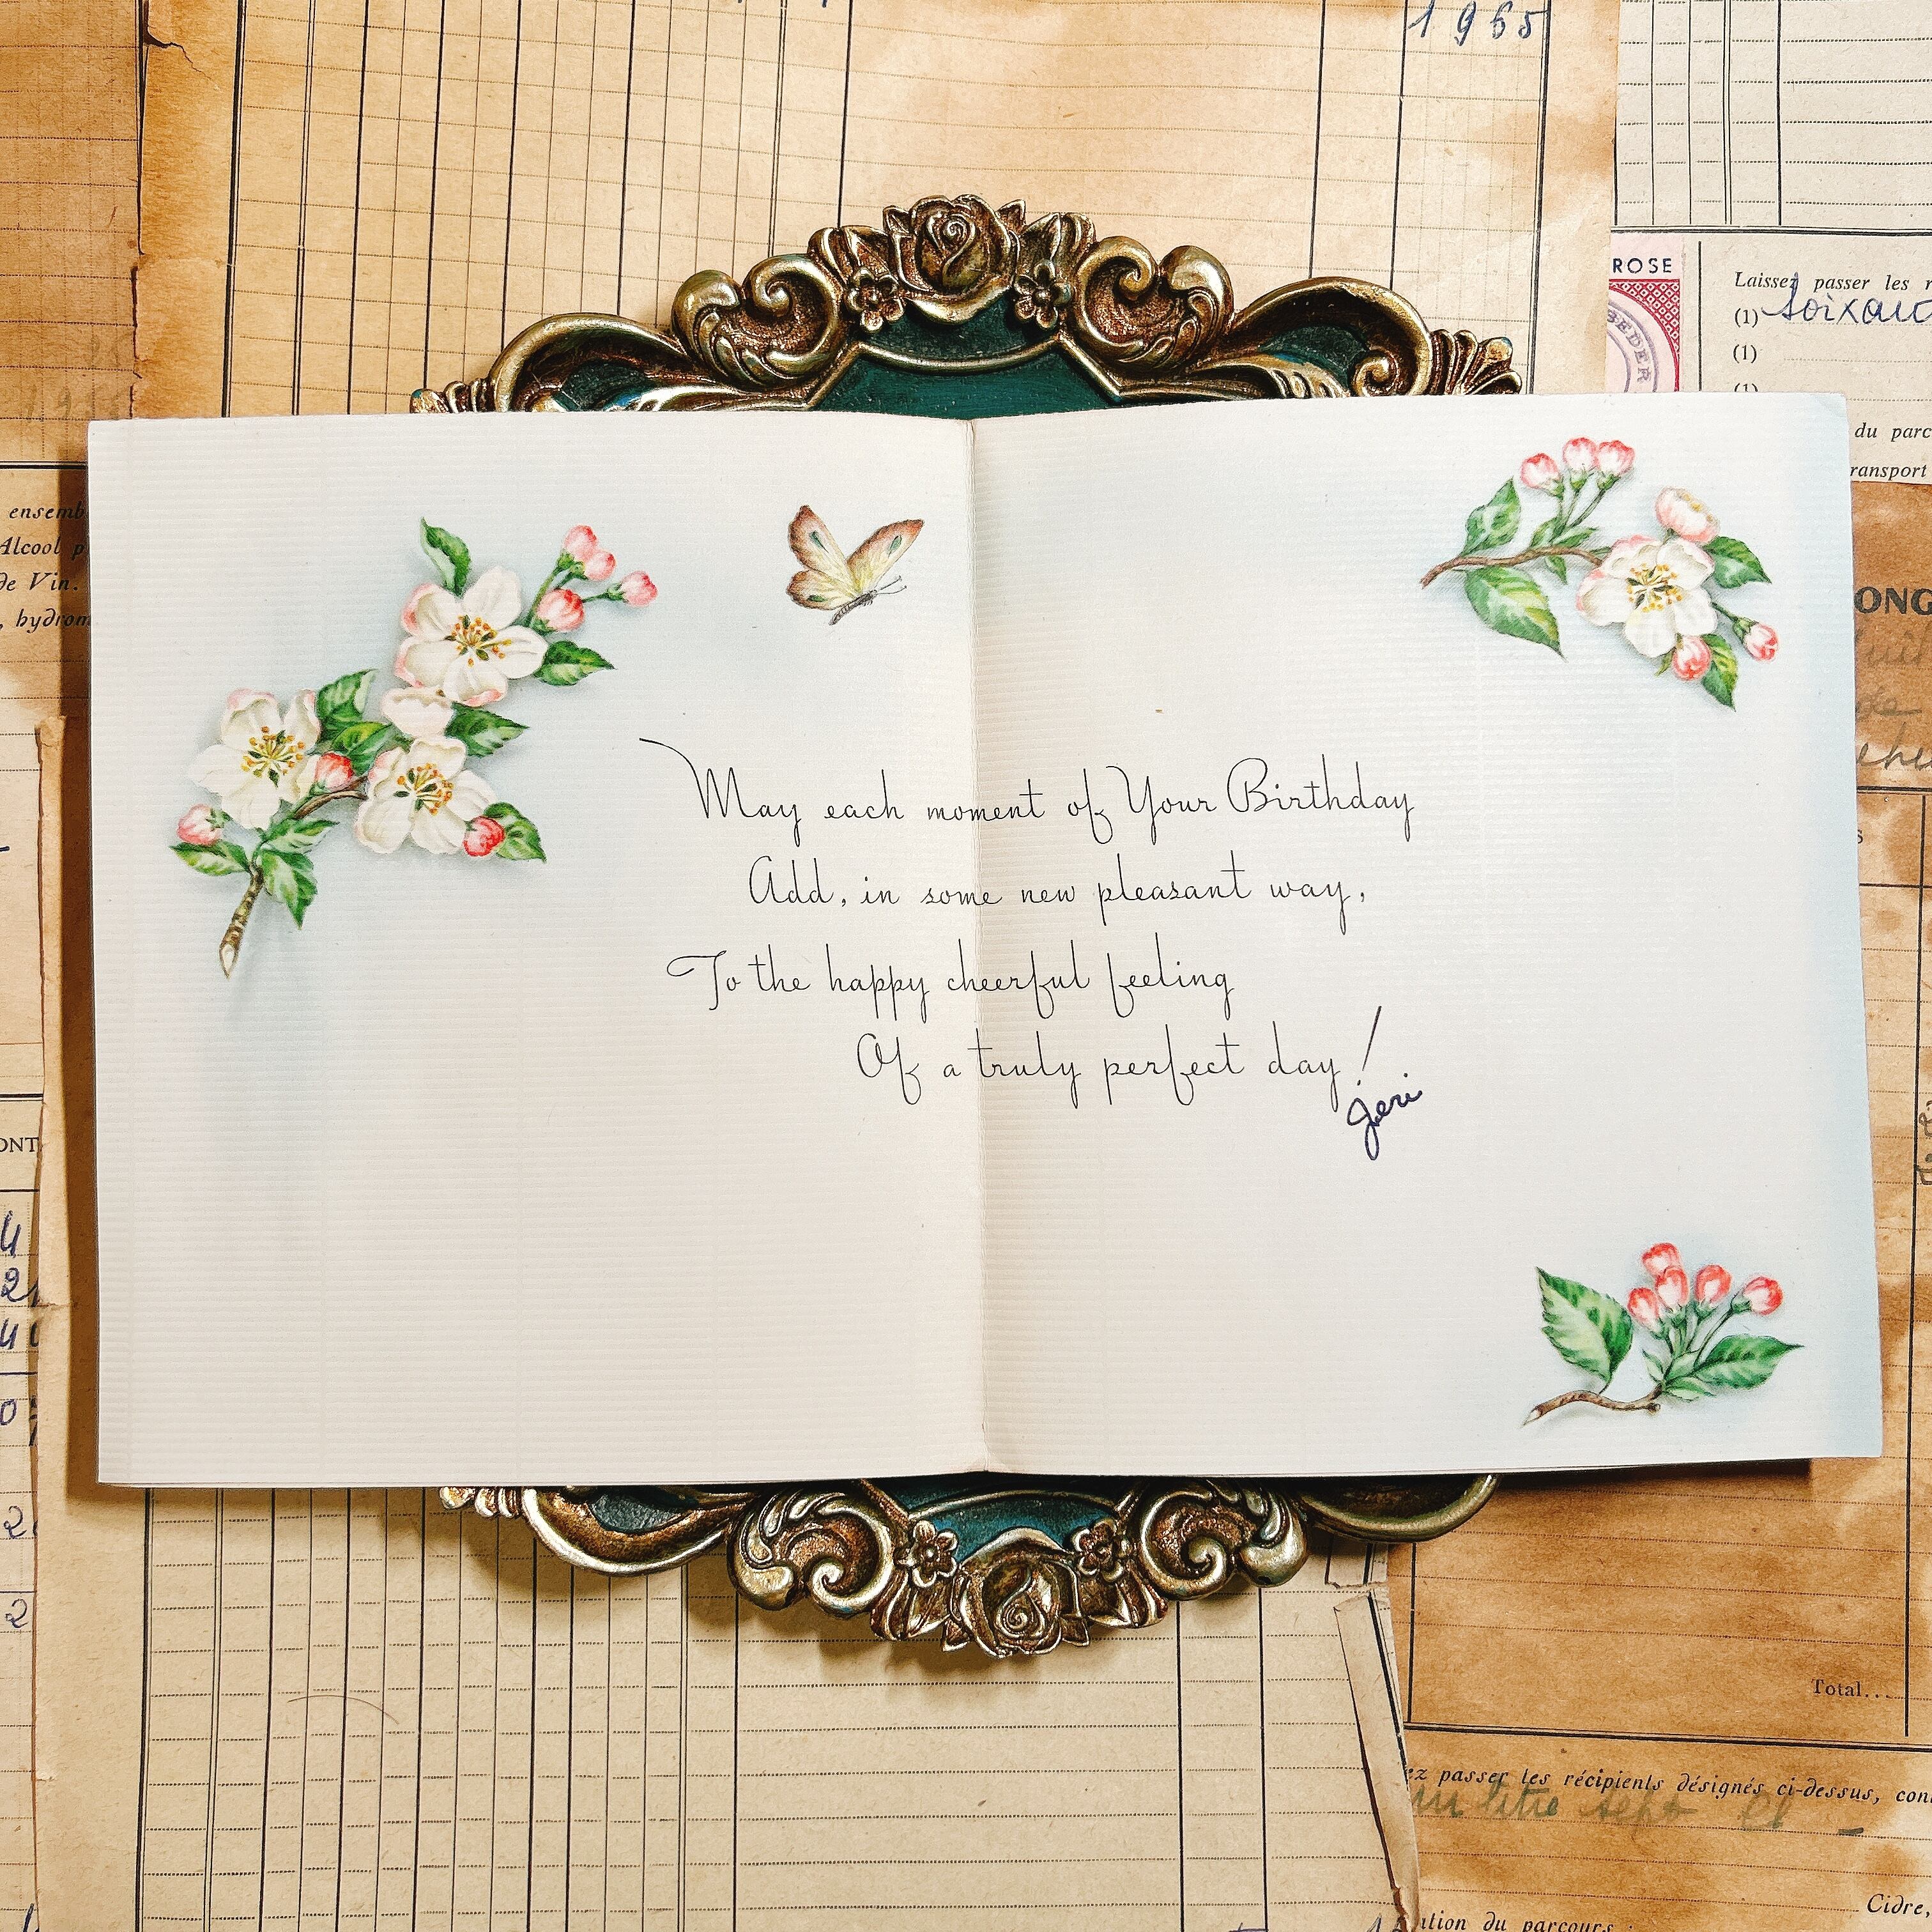 1965
ROSE
BEDER
Laissez passer les r
(1) soixan
(1)
(1)
du parc
ransport
ensemb
Alcool p
de Vin.
, hydrom
ONG
May each moment of Your Birthday
Add, in some new pleasant way,
To the happy cheerful feeling
Of a truly perfect day!
Jeri
ONT
4
2
4
0
2
2
Total...
ez passer les récipients désignés ci-dessus, con
un litre sept
Cidre,
ation du parcours :